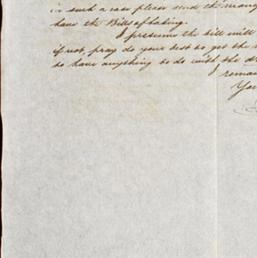 in such a case please send the
have the Bills of lading.
I presume the bill will
if not, pray do your best to get the
to have anything to do with the
I remain